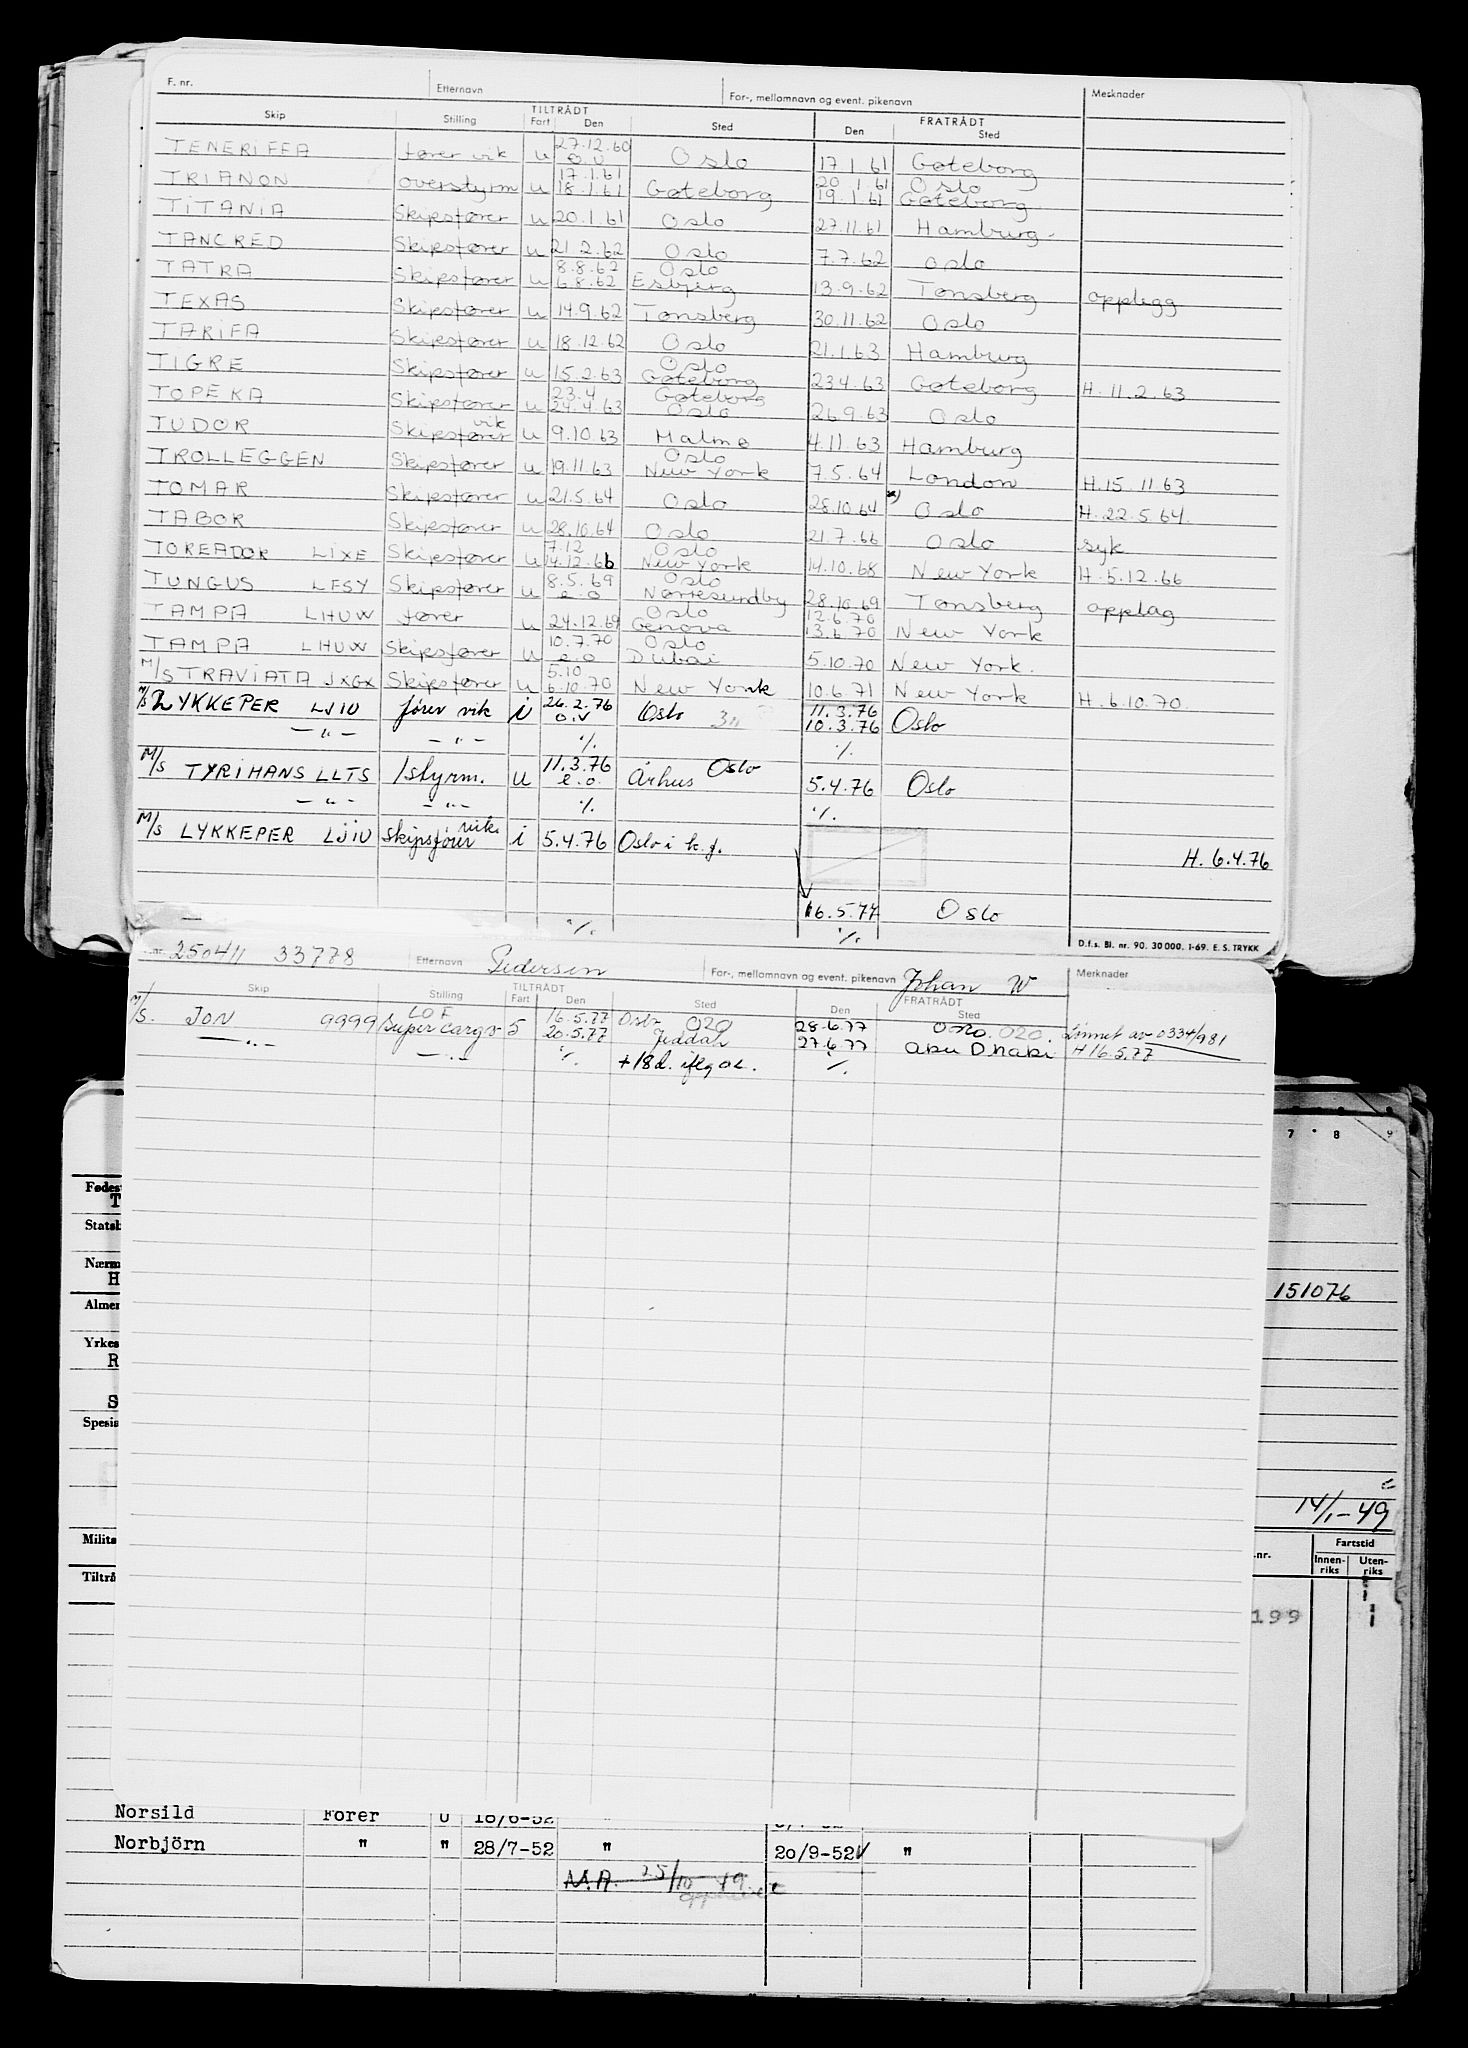 F. nr. Etternavn For-, mellomnavn og event. pikenavn Mesknader
Skip Stilling TILTRÅDT Fart Den Sted FRATRÅDT Den Sted
TENERIFFA fører vik u 27.12.60 o.v Oslo 17.1.61 Gøteborg
TRIANON overstyrm u 17.1.61 18.1.61 Gøteborg 20.1.61 19.1.61 Oslo Gøteborg
TITANIA Skipsfører u 20.1.61 Oslo 27.11.61 Hamburg
TANCRED Skipsfører u 21.2.62 Oslo 7.7.62 Oslo
TATRA Skipsfører u 8.8.62 6.8.62 Oslo Esbjerg 13.9.62 Tønsberg opplegg
TEXAS Skipsfører u 14.9.62 Tønsberg 30.11.62 Oslo
TARIFA Skipsfører u 18.12.62 Oslo 21.1.63 Hamburg
TIGRE Skipsfører u 15.2.63 Oslo Gøteborg 23.4.63 Gøteborg H.11.2.63
TOPEKA Skipsfører u 23.4 24.4.63 Gøteborg Oslo 26.9.63 Oslo
TUDOR Skipsfører vik u 9.10.63 Malmø 4.11.63 Hamburg
TROLLEGGEN Skipsfører u 19.11.63 Oslo New York 7.5.64 London H.15.11.63
TOMAR Skipsfører u 21.5.64 Oslo 28.10.64 x) Oslo H.22.5.64
TABOR Skipsfører u 28.10.64 Oslo 21.7.66 Oslo syk
TOREADOR LIXE Skipsfører u 7.12 14.12.66 Oslo New York 14.10.68 New York H.5.12.66
TUNGUS LFSY Skipsfører u 8.5.69 e.o Oslo Nørresundby 28.10.69 Tønsberg opplag
TAMPA LHUW fører u 24.12.69 Oslo Genova 12.6.70 13.6.70 New York
TAMPA LHUW Skipsfører u 10.7.70 e.o Oslo Dubai 5.10.70 New York.
M/S TRAVIATA JXGX Skipsfører u 5.10 6.10.70 New York 10.6.71 New York H.6.10.70.
M/S LYKKEPER LJIU fører vik i 26.2.76 o.v Oslo 11.3.76 10.3.76 Oslo
— " — — " — %. %.
M/S TYRIHANS LLTS 1styrm. u 11.3.76 e.o. Århus Oslo 5.4.76 Oslo
— " — — " — %. %.
M/S LYKKEPER LJIU skipsfører vik. i 5.4.76 Oslo i k.f. H. 6.4.76
16.5.77 Oslo
%. %.
D.f.s. Bl. nr. 90. 30 000. 1-69. E. S. TRYKK
nr. 250411 33778 Etternavn Pedersen For-, mellomnavn og event. pikenavn Johan W Merknader
Skip Stilling TILTRÅDT Fart Den Sted FRATRÅDT Den Sted
M/S. JON 9999 LOF supercargo 5 16.5.77 20.5.77 Oslo 020 Jeddah 28.6.77 27.6.77 Oslo 020. Abu Dhabi Lønnet av 0334/981 H 16.5.77
— " — — " — %. +18d. iflg OL. %.
7 8 9
Fødes
T
Statsb
Nærm
H
Almen
151076
Yrkes
R
S
Spesia
14/1-49
Milita
Tiltrå
.nr. Fartstid
Innen-riks Uten-riks
199
Norsild Fører U 18/6-52 "
Norbjörn " " 28/7-52 " 20/9-52 "
M.A. 25/10 49